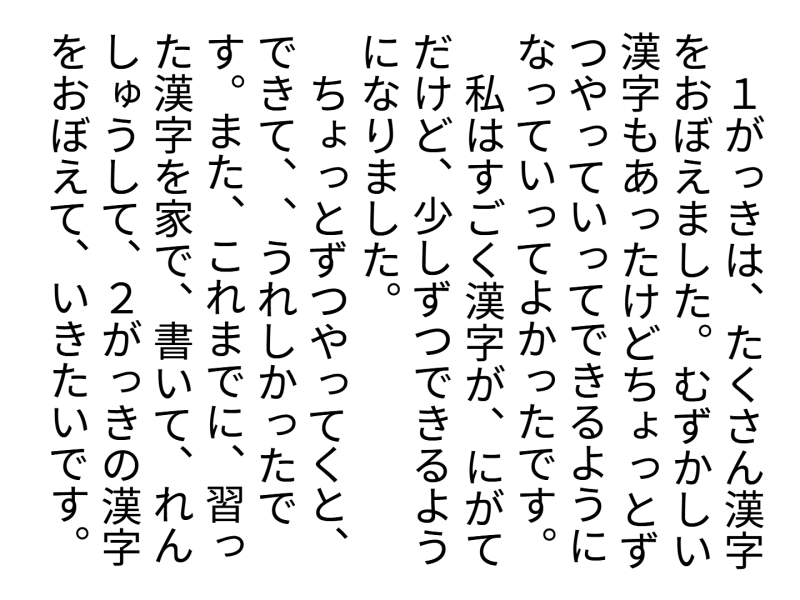 １がっきは、たくさん漢字
をおぼえました。むずかしい
漢字もあったけどちょっとず
つやっていってできるように
なっていってよかったです。
　私はすごく漢字が、にがて
だけど、少しずつできるよう
になりました。
　ちょっとずつやってくと、
できて、、うれしかったで
す。また、これまでに、習っ
た漢字を家で、書いて、れん
しゅうして、２がっきの漢字
をおぼえて、いきたいです。